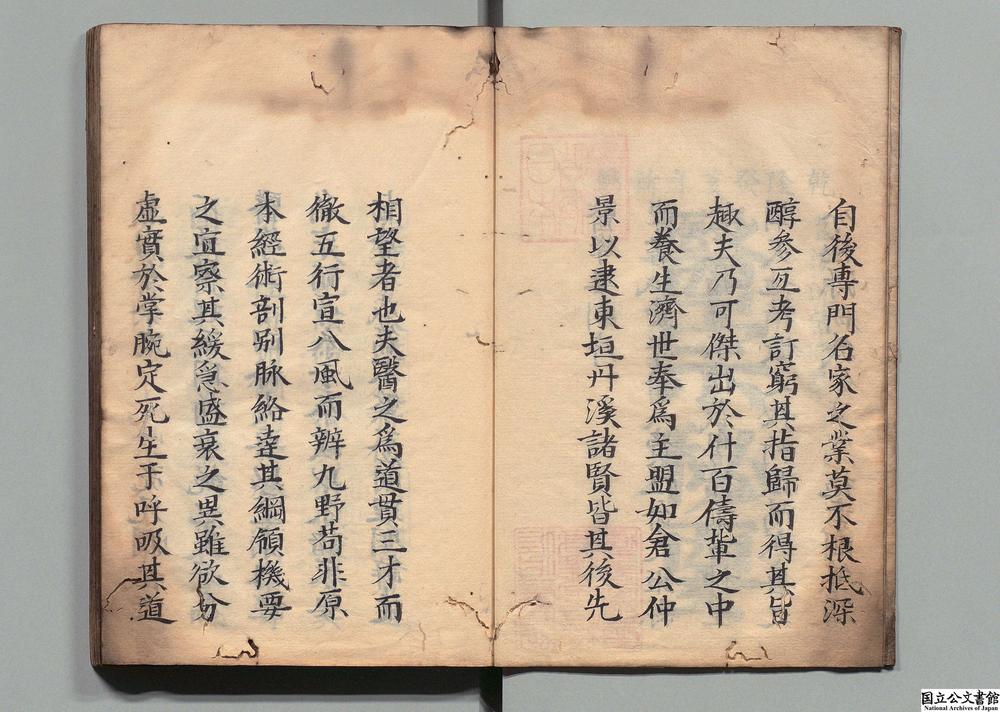 自後專門名家之業莫不根抵深
醇參互考訂窮其指歸而得其旨
趣夫乃可傑出於什百儔軰之中
而養生濟世奉爲主盟如倉公仲
景以逮東垣丹溪諸賢皆其後先
相望者也夫醫之爲道貫三才而
徹五行宣八風而辨九野苟非原
本經術剖别脉絡達其綱領機要
之宜察其緩急盛衰之異雖欲分
虛實於掌腕定死生于呼吸其道
国立公文書館
National Archives of Japan